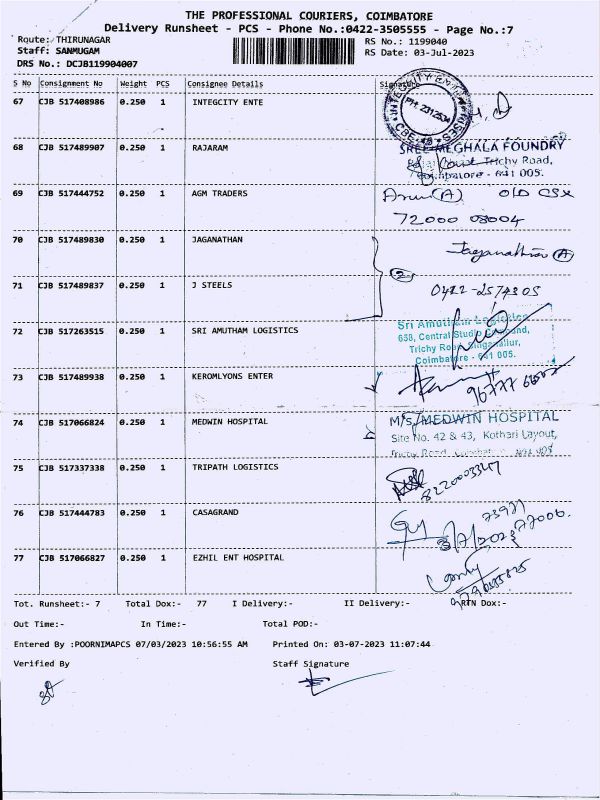 THE PROFESSIONAL COURIERS, COIMBATORE
Delivery Runsheet - PCS - Phone No.:0422-3505555 - Page No.:7
Route: THIRUNAGAR
RS No.: 1199040
Staff: SANMUGAM
RS Date: 03-Jul-2023
DRS No.: DCJB119904007
S No Consignment No Weight PCS Consignee Details Signature
67 CJB 517408986 0.250 1 INTEGCITY ENTE
68 CJB 517489907 0.250 1 RAJARAM
SREE MEGHALA FOUNDRY
Trichy Road,
Coimbatore - 641 005.
69 CJB 517444752 0.250 1 AGM TRADERS
Arun (A) OLD CSK
72000 08004
70 CJB 517489830 0.250 1 JAGANATHAN
Jaganathan (A)
2
71 CJB 517489837 0.250 1 J STEELS
0422-2574305
72 CJB 517263515 0.250 1 SRI AMUTHAM LOGISTICS
Sri Amutham Logistics
638, Central Studio Compound,
Trichy Road, Singanallur,
Coimbatore - 641 005.
73 CJB 517489938 0.250 1 KEROMLYONS ENTER
74 CJB 517066824 0.250 1 MEDWIN HOSPITAL
M/s. MEDWIN HOSPITAL
Site No. 42 & 43, Kothari Layout,
Trichy Road
75 CJB 517337338 0.250 1 TRIPATH LOGISTICS
76 CJB 517444783 0.250 1 CASAGRAND
73971
72006.
3/7/2023
77 CJB 517066827 0.250 1 EZHIL ENT HOSPITAL
Tot. Runsheet:- 7 Total Dox:- 77 I Delivery:- II Delivery:- RTN Dox:-
Out Time:- In Time:- Total POD:-
Entered By :POORNIMAPCS 07/03/2023 10:56:55 AM Printed On: 03-07-2023 11:07:44
Verified By Staff Signature